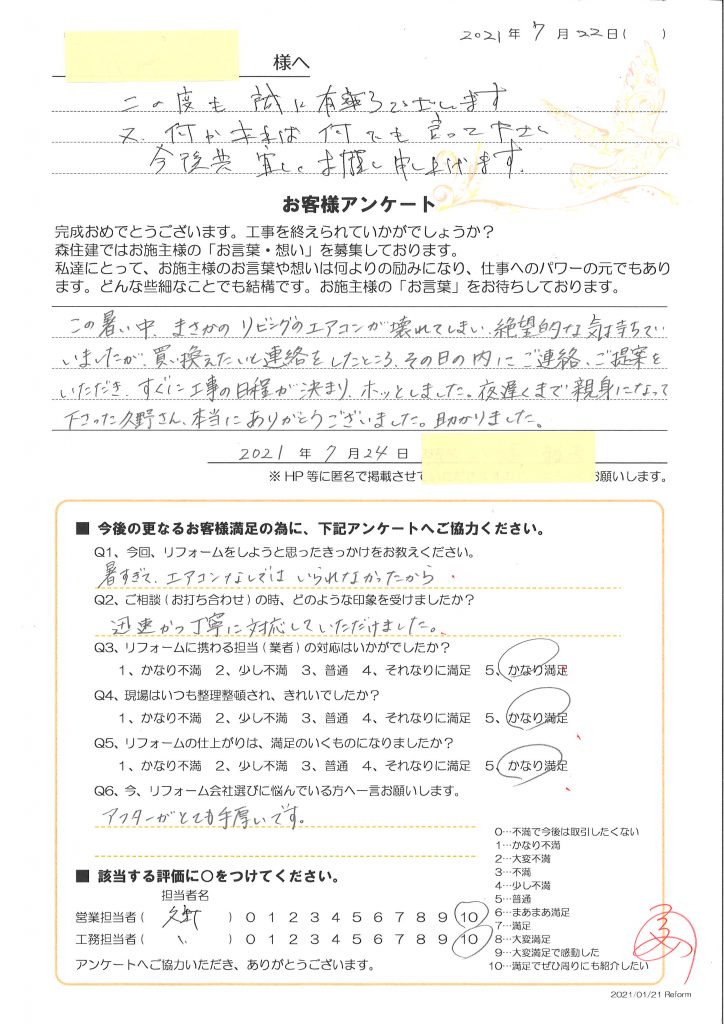 2021年 7月22日( )
様へ
この度も 誠に有難うございます
又、何か有れば 何でも言って下さい
今後共 宜しくお願い申し上げます。
お客様アンケート
完成おめでとうございます。工事を終えられていかがでしょうか？
森住建ではお施主様の「お言葉・想い」を募集しております。
私達にとって、お施主様のお言葉や想いは何よりの励みになり、仕事へのパワーの元でもあり
ます。どんな些細なことでも結構です。お施主様の「お言葉」をお待ちしております。
この暑い中、まさかのリビングのエアコンが壊れてしまい、絶望的な気持ちで
いましたが、買い換えたいと連絡をしたところ、その日の内にご連絡、ご提案を
いただき、すぐに工事の日程が決まり、ホッとしました。夜遅くまで親身になって
下さった久野さん、本当にありがとうございました。助かりました。
2021 年 7月24日
※HP等に匿名で掲載させて お願いします。
■ 今後の更なるお客様満足の為に、下記アンケートへご協力ください。
Q1、今回、リフォームをしようと思ったきっかけをお教えください。
暑すぎて、エアコンなしではいられなかったから
Q2、ご相談(お打ち合わせ)の時、どのような印象を受けましたか？
迅速かつ丁寧に対応していただけました。
Q3、リフォームに携わる担当(業者)の対応はいかがでしたか？
1、かなり不満 2、少し不満 3、普通 4、それなりに満足 5、かなり満足
Q4、現場はいつも整理整頓され、きれいでしたか？
1、かなり不満 2、少し不満 3、普通 4、それなりに満足 5、かなり満足
Q5、リフォームの仕上がりは、満足のいくものになりましたか？
1、かなり不満 2、少し不満 3、普通 4、それなりに満足 5、かなり満足
Q6、今、リフォーム会社選びに悩んでいる方へ一言お願いします。
アフターがとても手厚いです。
0…不満で今後は取引したくない
1…かなり不満
2…大変不満
3…不満
4…少し不満
5…普通
6…まあまあ満足
7…満足
8…大変満足
9…大変満足で感動した
10…満足でぜひ周りにも紹介したい
■ 該当する評価に○をつけてください。
担当者名
営業担当者( 久野 ) 0 1 2 3 4 5 6 7 8 9 10
工務担当者( 〃 ) 0 1 2 3 4 5 6 7 8 9 10
アンケートへご協力いただき、ありがとうございます。
2021/01/21 Reform